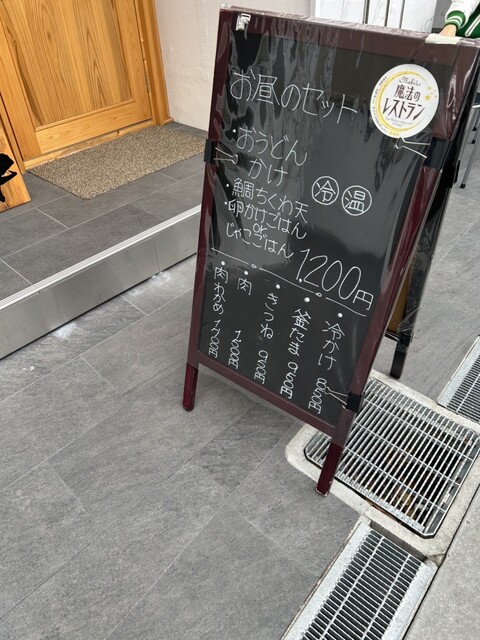 お昼のセット
・おうどん
かけ
冷 温
・鯛ちくわ天
・卵かけごはん
or
じゃこごはん
1200円
・冷かけ 850円
・釜たま 950円
・きつね 950円
・肉 1600円
・肉わかめ 1700円
魔法の
レストラン